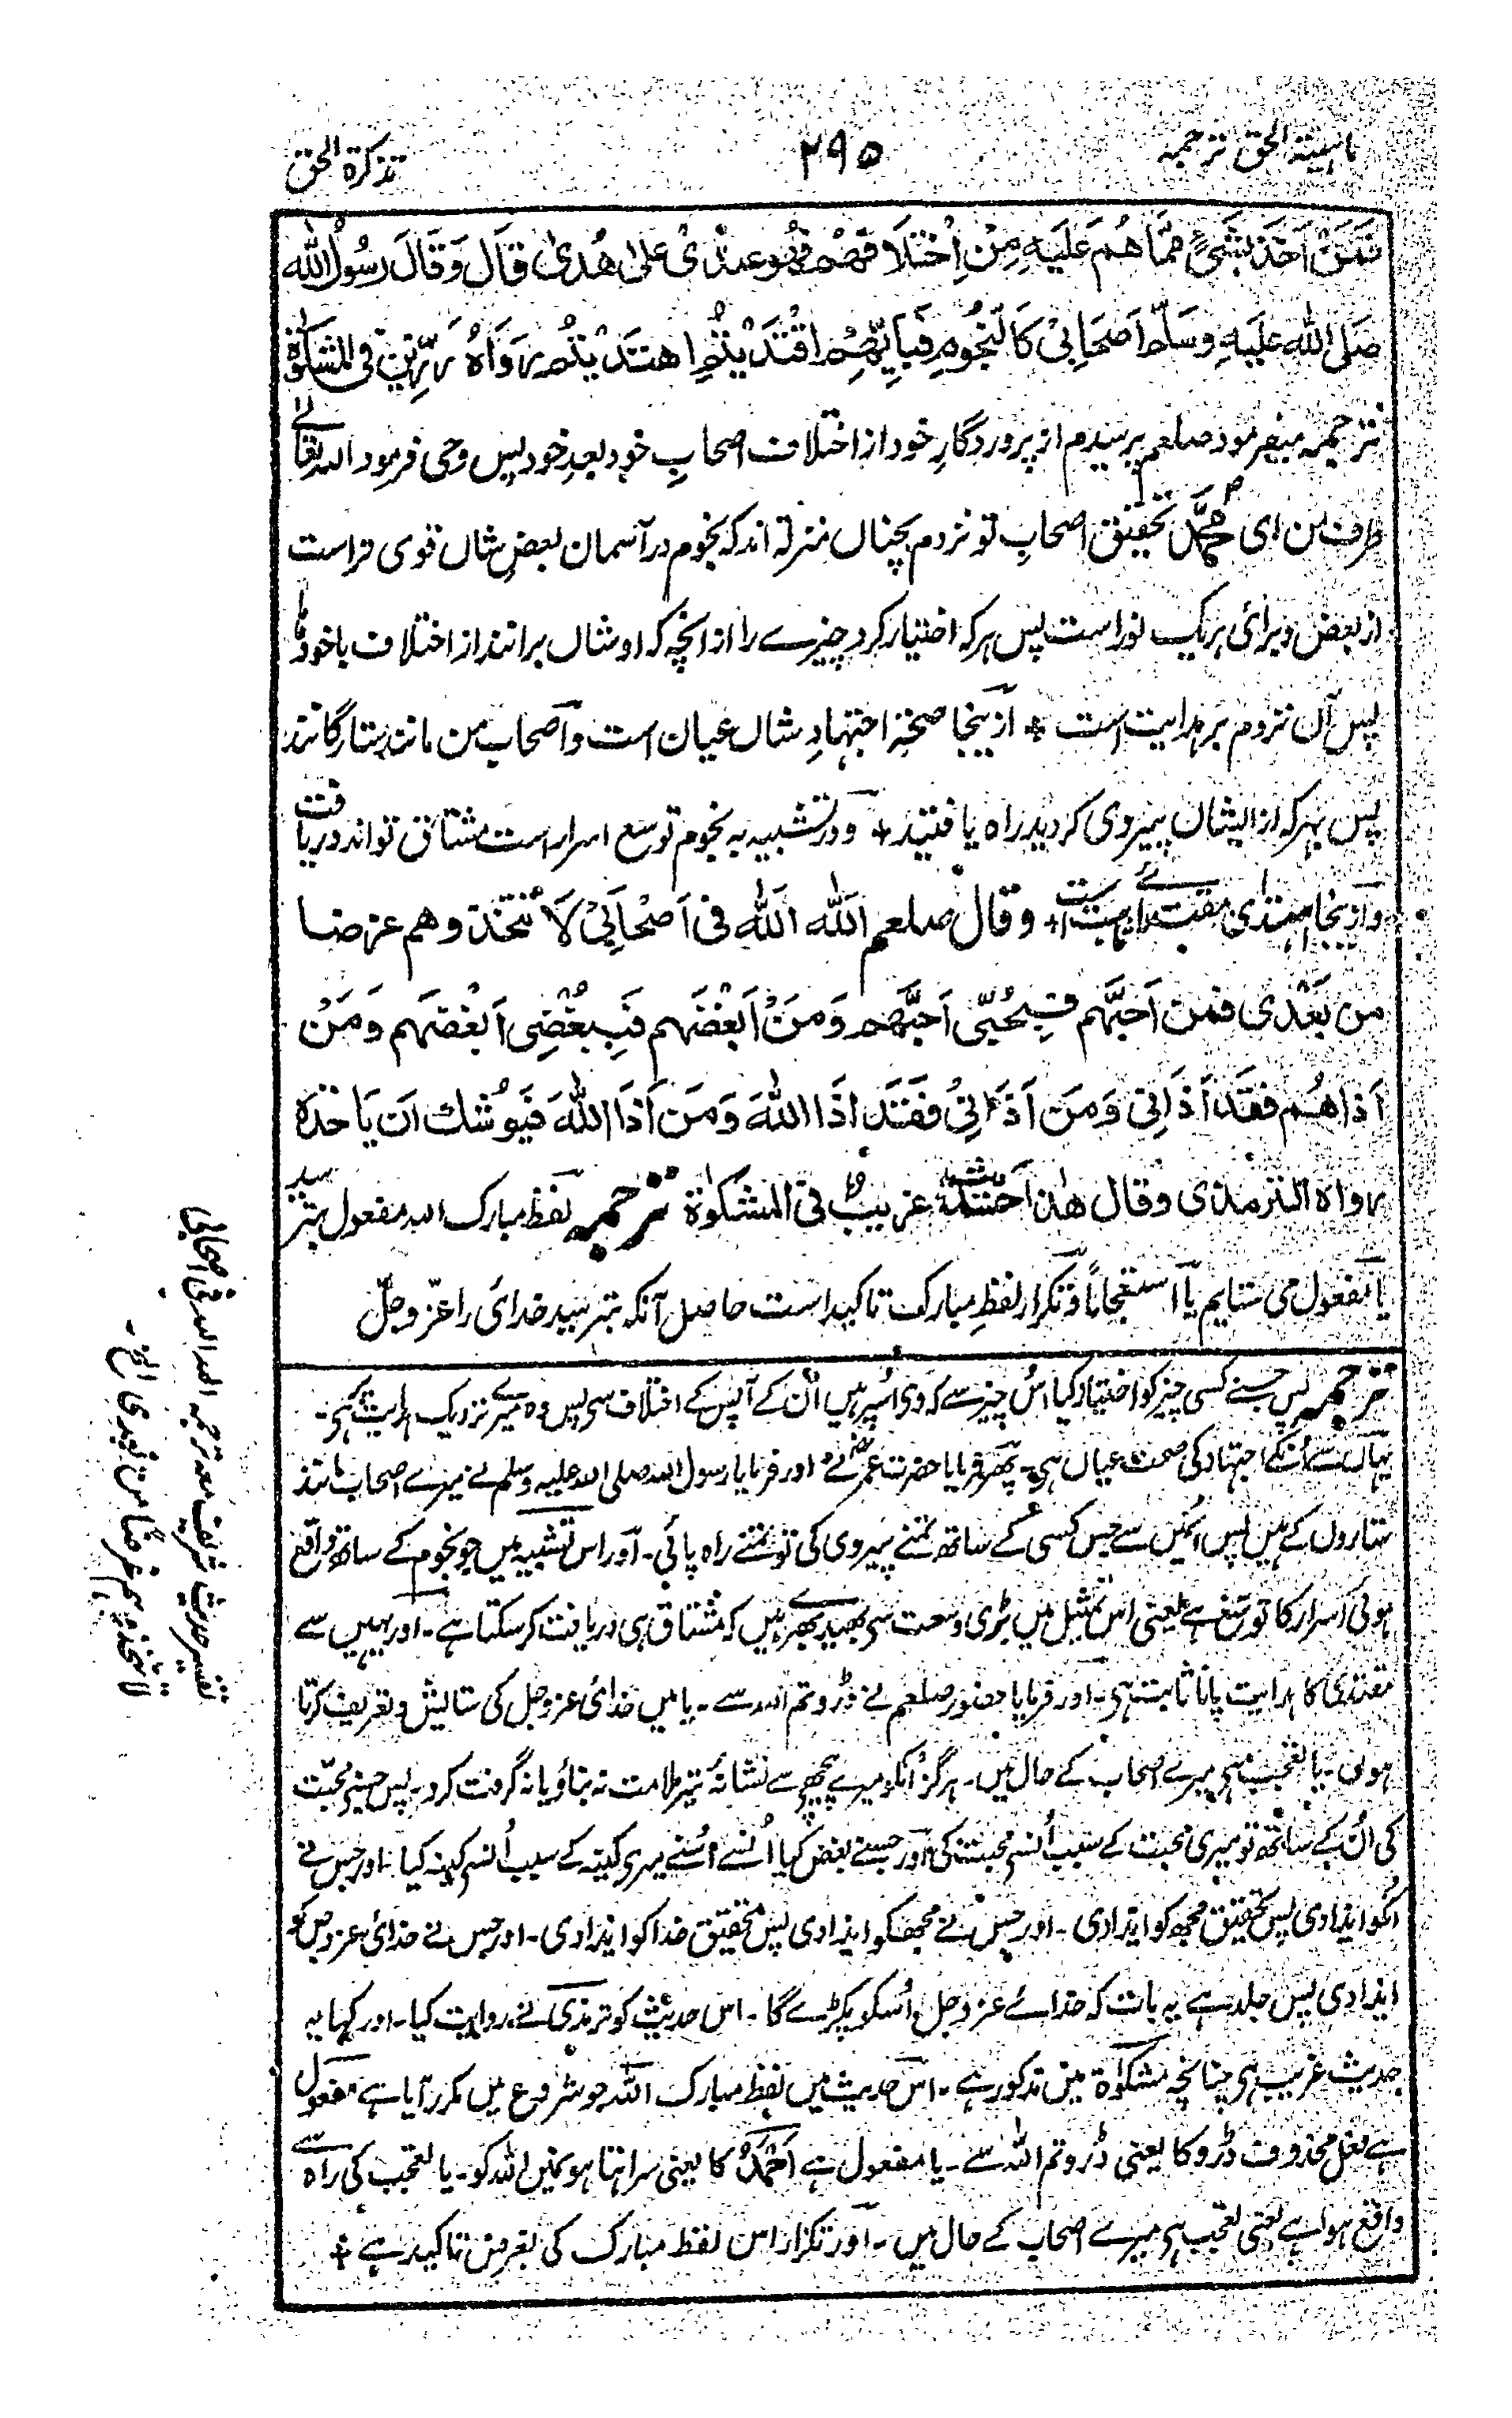 ماہیتہ الحق ترجمہ
۲۹۵
تذکرۃ الحق
فَمَنْ اَخَذَ بِشَیْءٍ مِمَّا هُمْ عَلَیْهِ مِنْ اِخْتِلَافِهِمْ فَهُوَ عِنْدِیْ عَلیٰ هُدیً قَالَ وَقَالَ رَسُوْلُ اللّٰه
صَلَی اللّٰه عَلَیْهِ وَسَلَّمَ اَصْحَابِیْ کَالنُّجُوْمِ فَبِاَیِّهِمْ اقْتَدَیْتُمْ اِهْتَدَیْتُمْ رَوَاهُ رَزِیْن فی المشکوٰة
ترجمہ میفرمود صلعم پرسیدم از پروردگارِ خود از اختلاف اصحابِ خود بعدِ خود پس وحی فرمود اللہ تعالےٰ
طرف من ای محمدؐ تحقیق اصحابِ تو نزدم بچناں منزلہ اند کہ نجوم در آسمان بعضِ شاں قوی تر است
از بعض و برائ ہریک نور است پس ہرکہ اختیار کرد چیزے را از انچہ کہ اوشاں برانند از اختلاف باخودہا
پس آن نزدم بر ہدایت است + ازینجا صحتِ اجتہادِ شاں عیان است و اصحاب من مانند ستارگانند
پس بہرکہ از ایشان پیروی کردید راہ یافتید + و در تشبیہ بہ نجوم توسع اسرار است مشتاق تواند دریافت
وازینجا مقتدی ہست + وقال صلعم اَللّٰه اَللّٰه فی اَصْحَابِیْ لَا تَتَّخِذُوهم غرضا
من بَعْدی فمن اَحَبَّهم فَبِحُبِّی اَحَبَّهم وَمَنْ اَبْغَضَهم فَبِبُغْضِی اَبْغَضَهم وَمَنْ
اٰذاهُم فقَد اٰذَانِی وَمَن اٰذَانِیْ فَقَدْ اٰذَا اللّٰهَ وَمَن اٰذَا اللّٰهَ فَیُوْشِك اَن یَاخُذَه
رواه الترمذی وقال هٰذا حدیث غریبٌ فی المشکوٰة ترجمہ لفظ مبارک اللہ مفعول بترسید
یا مفعول می ستایم یا استعجاباً و تکرار لفظِ مبارک تاکید است حاصل آنکہ بترسید خدائ را عزّ وجلّ
ترجمہ پس جسنے کسی چیز کو اختیار کیا اُس چیز سے کہ وی اُسپر ہیں اُن کے آپس کے اختلاف سی پس وہ میرے نزدیک ہدایت پر ہی۔
یہاں سے اُنکے اجتہاد کی صحت عیاں ہی۔ پھر فرمایا حضرت عمرؓ نے اور فرمایا رسول اللہ صلی اللہ علیہ وسلم نے میرے اصحاب مانند
ستاروں کے ہیں پس اُنمیں سے جس کسی کے ساتھ تمنے پیروی کی تو تمنے راہ پائی۔ اور اس تشبیہ میں جو نجوم کے ساتھ واقع
ہوئی اسرار کا توسّع ہے یعنی اس تمثیل میں بڑی وسعت سی بھید بھرے ہیں کہ مشتاق ہی دریافت کر سکتا ہے۔ اور یہیں سے
مقتدی کا ہدایت پانا ثابت ہی۔ اور فرمایا حضور صلعم نے ڈرو تم اللہ سے۔ یا میں خدائ عزوجل کی ستایش و تعریف کرتا
ہوں۔ یا تعجب ہی میرے اصحاب کے حال میں۔ ہرگز اُنکو میرے پیچھے سے نشانۂ تیر ملامت نہ بناؤ یا نہ گرفت کرو۔ پس جسنے محبّت
کی اُن کے ساتھ تو میری محبت کے سبب اُنسے محبت کی اور جسنے بغض کیا اُنسے اُسنے میری کینہ کے سبب اُنسے کینہ کیا۔ اور جس نے
اُنکو ایذا دی پس تحقیق مجھ کو ایذا دی۔ اور جس نے مجھکو ایذا دی پس تحقیق خدا کو ایذا دی۔ اور جس نے خدائ عزوجل کو
ایذا دی پس جلد ہے یہ بات کہ خدائے عزوجل اُسکو پکڑے گا۔ اس حدیث کو ترمذی نے روایت کیا۔ اور کہا یہ
حدیث غریب ہی چنانچہ مشکوٰۃ میں مذکور ہے۔ اس حدیث میں لفظ مبارک اللّٰه جو شروع میں مکرر آیا ہے مفعول
ہے فعل محذوف ڈرو کا یعنی ڈرو تم اللّٰه سے۔ یا مفعول ہے اَحْمَدُ کا یعنی سراہتا ہوں میں اللّٰه کو۔ یا تعجب کی راہ سے
واقع ہوا ہے یعنی تعجب ہی میرے اصحاب کے حال میں۔ اور تکرار اس لفظ مبارک کی بغرض تاکید ہے +
تفسیر حدیث شریف معہ ترجمہ اللہ اللہ فی اصحابی
لا تتخذوہم غرضًا من بعدی الخ۔